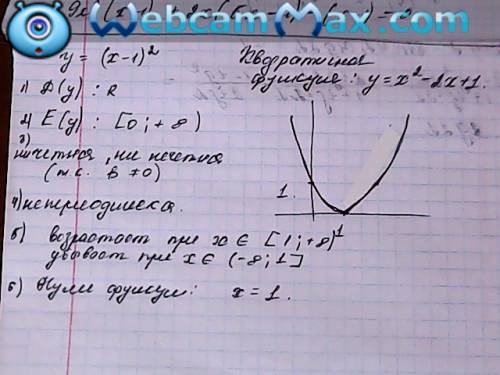 WebcamMax.com
y = (x-1)²
Квадратичная
функция: y = x² - 2x + 1.
1) D(y) : R
2) E(y) : [0; +8)
3)
ни четная, ни нечетная
(т.к. b ≠ 0)
1.
4) непериодическа.
1
5) возрастает при x ∈ [1; +8)
убывает при x ∈ (-8; 1]
6) Нули функции: x = 1.